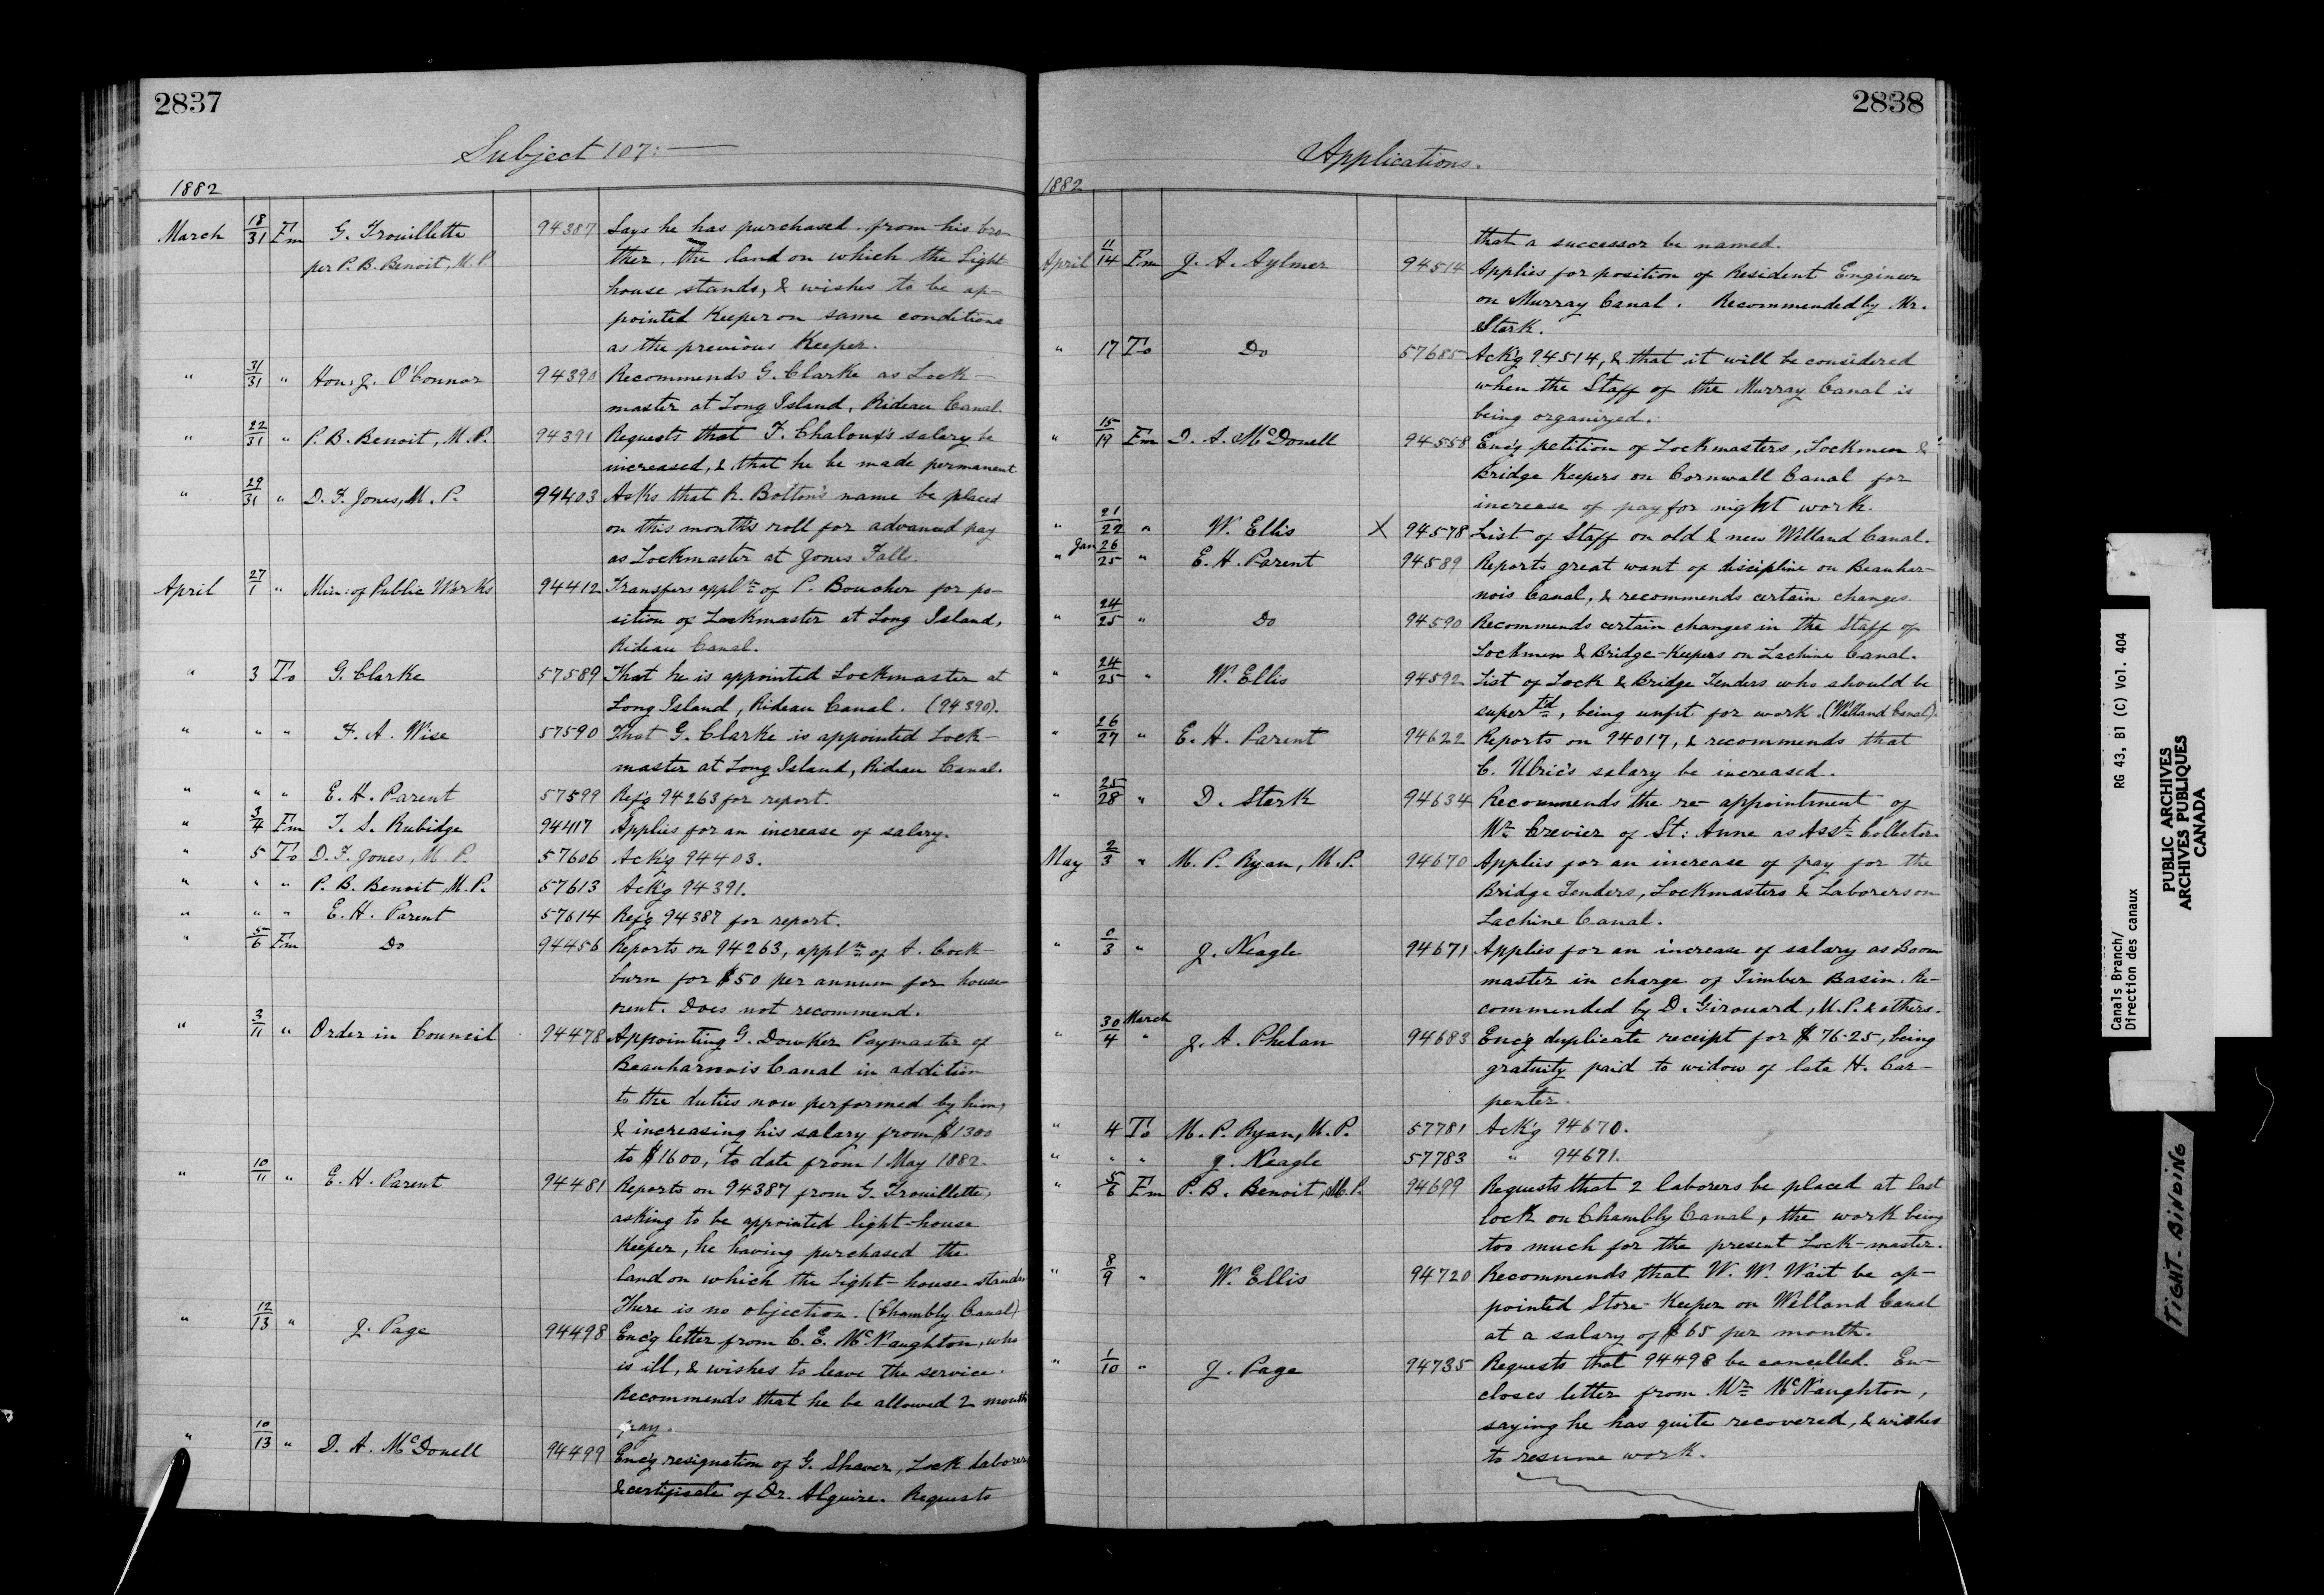 2837
Subject 107:—
1882
March 18/31 Fm G. Trouillette 94387 Says he has purchased from his bro-
per P. B. Benoit, M.P. ther, the land on which the Light
house stands, & wishes to be ap-
pointed Keeper on same conditions
as the previous Keeper.
" 31/31 " Hon: J. O'Connor 94390 Recommends G. Clarke as Lock-
master at Long Island, Rideau Canal.
" 22/31 " P. B. Benoit, M.P. 94391 Requests that F. Chaloux's salary be
increased, & that he be made permanent
" 29/31 " D. F. Jones, M.P. 94403 Asks that R. Bolton's name be placed
on this month's roll for advanced pay
as Lockmaster at Jones Falls.
April 27/1 " Min: of Public Works 94412 Transfers appl'n of P. Boucher for po-
sition of Lockmaster at Long Island,
Rideau Canal.
" 3 To G. Clarke 57589 That he is appointed Lockmaster at
Long Island, Rideau Canal. (94390).
" " " F. A. Wise 57590 That G. Clarke is appointed Lock-
master at Long Island, Rideau Canal.
" " " E. H. Parent 57599 Ref'g 94263 for report.
" 3/4 Fm T. S. Rubidge 94417 Applies for an increase of salary.
" 5 To D. F. Jones, M.P. 57606 Ack'g 94403.
" " " P. B. Benoit, M.P. 57613 Ack'g 94391.
" " " E. H. Parent 57614 Ref'g 94387 for report.
" 5/6 Fm Do 94456 Reports on 94263, appl'n of A. Cock-
burn for $50 per annum for house-
rent. Does not recommend.
" 3/11 " Order in Council 94478 Appointing G. Dowker Paymaster of
Beauharnois Canal in addition
to the duties now performed by him,
& increasing his salary from $1300
to $1600, to date from 1 May 1882.
" 10/11 " E. H. Parent 94481 Reports on 94387 from G. Trouillette,
asking to be appointed light-house
Keeper, he having purchased the
land on which the Light-house stands
There is no objection. (Chambly Canal)
" 12/13 " J. Page 94498 Enc'g letter from C. E. McNaughton, who
is ill, & wishes to leave the service.
Recommends that he be allowed 2 months
pay.
" 10/13 " D. A. McDonell 94499 Enc'g resignation of G. Shaver, Lock laborer
& certificate of Dr. Alguire. Requests
2838
Applications.
1882
that a successor be named.
April 11/14 Fm J. A. Aylmer 94514 Applies for position of Resident Engineer
on Murray Canal. Recommended by Mr.
Stark.
" 17 To Do 57685 Ack'g 94514, & that it will be considered
when the Staff of the Murray Canal is
being organized.
" 15/19 Fm D. A. McDonell 94558 Enc'g petition of Lockmasters, Lockmen &
Bridge Keepers on Cornwall Canal for
increase of pay for night work.
" 21/22 " W. Ellis X 94578 List of Staff on old & new Welland Canal.
" Jan 26/25 " E. H. Parent 94589 Reports great want of discipline on Beauhar-
nois Canal, & recommends certain changes.
" 24/25 " Do 94590 Recommends certain changes in the Staff of
Lockmen & Bridge-Keepers on Lachine Canal.
" 24/25 " W. Ellis 94592 List of Lock & Bridge Tenders who should be
super'td, being unfit for work. (Welland Canal).
" 26/27 " E. H. Parent 94622 Reports on 94017, & recommends that
C. Ulric's salary be increased.
" 25/28 " D. Stark 94634 Recommends the re-appointment of
Mr. Crevier of St: Anne as Ass't Collector.
May 2/3 " M. P. Ryan, M.P. 94670 Applies for an increase of pay for the
Bridge Tenders, Lockmasters & Laborers on
Lachine Canal.
" 0/3 " J. Neagle 94671 Applies for an increase of salary as Boom
master in charge of Timber Basin. Re-
commended by D. Girouard, M.P. & others.
" 30 March/4 " J. A. Phelan 94683 Enc'g duplicate receipt for $76.25, being
gratuity paid to widow of late H. Car-
penter.
" 4 To M. P. Ryan, M.P. 57781 Ack'g 94670.
" " " J. Neagle 57783 " 94671.
" 5/6 Fm P. B. Benoit, M.P. 94699 Requests that 2 laborers be placed at last
lock on Chambly Canal, the work being
too much for the present Lock-master.
" 8/9 " W. Ellis 94720 Recommends that W. W. Wait be ap-
pointed Store-Keeper on Welland Canal
at a salary of $65 per month.
" 1/10 " J. Page 94735 Requests that 94498 be cancelled. En-
closes letter from Mr. McNaughton,
saying he has quite recovered, & wishes
to resume work.
Canals Branch/
Direction des canaux
RG 43, B1 (C) Vol. 404
PUBLIC ARCHIVES
ARCHIVES PUBLIQUES
CANADA
TIGHT BINDING